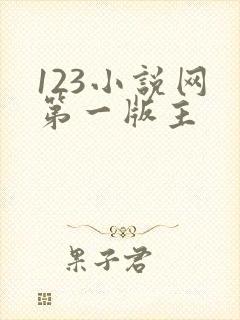 123小説网
第一版主
果子君